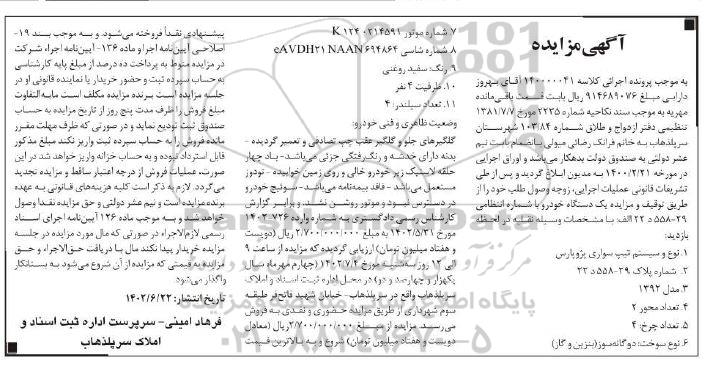 آگهی مزایده
به موجب پرونده اجرائی کلاسه ۱۴۰۰۰۰۰۴۱ آقای بهروز
دارابی مبلغ ۹۱۴۶۸۹۰۷۶ ریال بابت قسمت باقی‌مانده
مهریه به موجب سند نکاحیه شماره ۲۲۳۵ مورخ ۱۳۸۱/۷/۷
تنظیمی دفتر ازدواج و طلاق شماره ۱۰۳/۸۴ شهرستان
سرپلذهاب در حق خانم فرانک رضائی میولی بانضمام بابت نیم
عشر دولتی به صندوق دولت بدهکار می‌باشد و اوراق اجرایی
در مورخه ۱۴۰۰/۲/۲۱ به مدیون ابلاغ گردید و پس از طی
تشریفات قانونی عملیات اجرایی، زوجه وصول طلب خود را از
طریق توقیف و مزایده یک دستگاه خودرو با شماره انتظامی
۲۹-۵۵۸ د ۲۲ الف با مشخصات وسیله نقلیه در لحظه
بازدید:
۱. نوع و سیستم تیپ سواری پژوپارس
۲. شماره پلاک ۲۹-۵۵۸ د ۲۲
۳. مدل ۱۳۹۲
۴. تعداد محور ۲
۵. تعداد چرخ: ۴
۶. نوع سوخت: دوگانه‌سوز (بنزین و گاز)
۷ شماره موتور ۰۲۱۴۵۹۱ ۱۲۴K
۸ شماره شاسی ۶۹۴۸۶۴ eAVDH۲۱ NAAN
۹. رنگ: سفید روغنی
۱۰. ظرفیت ۴ نفر
۱۱. تعداد سیلندر: ۴
وضعیت ظاهری و فنی خودرو:
گلگیرهای جلو و گلگیر عقب چپ تصادفی و تعمیر گردیده -
بدنه دارای خدشه و رنگ‌رفتگی جزئی می‌باشد- باد چهار
حلقه لاستیک زیر خودرو خالی و روی زمین خوابیده- تودوز
مستعمل می‌باشد - فاقد بیمه‌نامه می‌باشد- سوئیچ خودرو
در دسترس نبود و موتور روشن نشد و برابر گزارش
کارشناس رسمی دادگستری به شماره وارده ۱۴۰۳۰۷۲۶
مورخ ۱۴۰۲/۵/۳۱ به مبلغ ۲/۷۰۰/۰۰۰/۰۰۰ ریال (دویست
و هفتاد میلیون تومان) ارزیابی گردیده که مزایده از ساعت ۹
الی ۱۲ روز سه‌شنبه مورخ ۱۴۰۲/۷/۴ (چهارم مهرماه سال
یکهزار و چهارصد و دو) در محل اداره ثبت اسناد و املاک
سرپلذهاب واقع در سرپلذهاب- خیابان شهید فاتح‌فر طبقه
سوم شهرداری از طریق مزایده حضوری و نقدی به فروش
می‌رسد. مزایده از مبلغ ۲/۷۰۰/۰۰۰/۰۰۰ ریال (معادل
دویست و هفتاد میلیون تومان) شروع و به بالاترین قیمت
پیشنهادی نقداً فروخته می‌شود. و به موجب بند ۱۹-
اصلاحی آیین‌نامه اجرا و ماده ۱۳۶- آیین‌نامه اجرا، شرکت
در مزایده منوط به پرداخت ده درصد از مبلغ پایه کارشناسی
به حساب سپرده ثبت و حضور خریدار یا نماینده قانونی او در
جلسه مزایده است. برنده مزایده مکلف است مابه‌التفاوت
مبلغ فروش را ظرف مدت پنج روز از تاریخ مزایده به حساب
صندوق ثبت تودیع نماید و در صورتی که ظرف مهلت مقرر
مانده فروش را به حساب سپرده ثبت واریز نکند مبلغ مذکور
قابل استرداد نبوده و به حساب خزانه واریز خواهد شد در این
صورت، عملیات فروش از درجه اعتبار ساقط و مزایده تجدید
می‌گردد. لازم به ذکر است کلیه هزینه‌های قانونی به عهده
برنده مزایده است و نیم عشر دولتی و حق مزایده نقداً وصول
خواهد شد و به موجب ماده ۱۲۶ آیین‌نامه اجرای اسناد
رسمی لازم‌الاجراء در صورتی که مال مورد مزایده در جلسه
مزایده خریدار پیدا نکند مال با دریافت حق‌الاجراء و حق
مزایده به قیمتی که مزایده از آن شروع می‌شود به بستانکار
واگذار می‌شود.
تاریخ انتشار: ۱۴۰۲/۶/۲۲
فرهاد امینی- سرپرست اداره ثبت اسناد و
املاک سرپلذهاب